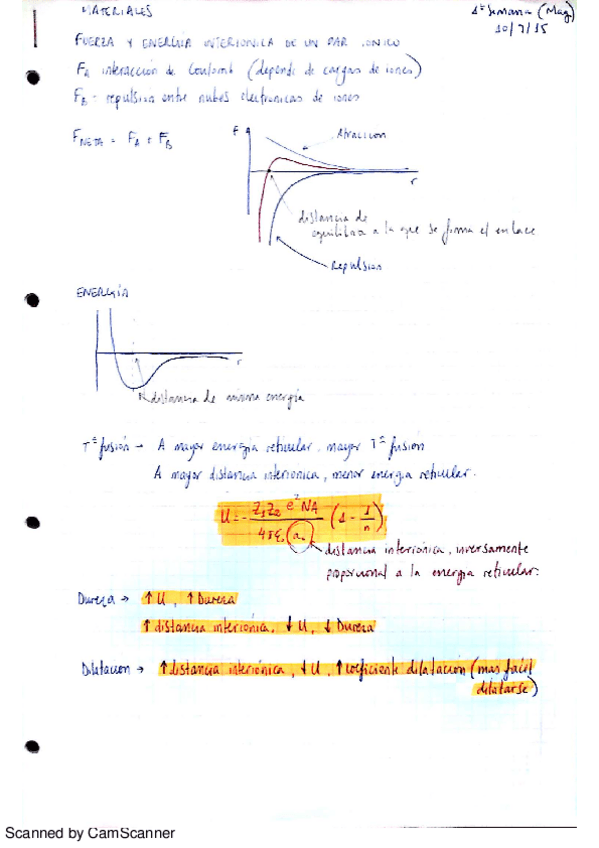 MATERIALES
1ª Semana (Mag)
10/7/15
FUERZA Y ENERGÍA INTERIÓNICA DE UN PAR IÓNICO
FA interacción de Coulomb (depende de cargas de iones)
FB - repulsiva entre nubes electronicas de iones
FNETA = FA + FB
F
Atraccion
r
distancia de
equilibrio a la que se forma el enlace
Repulsion
ENERGÍA
r
distancia de mínima energía
Tª fusión → A mayor energía reticular, mayor Tª fusión
A mayor distancia interionica, menor energia reticular.
U = - Z1Z2 e² NA / 4πε0 a0 (1 - 1/n)
distancia interiónica, inversamente
proporcional a la energía reticular.
Dureza → ↑ U, ↑ Dureza
↑ distancia interiónica, ↓ U, ↓ Dureza
Dilatacion → ↑ distancia interiónica, ↓ U, ↑ coeficiente dilatación (mas facil
dilatarse)
Scanned by CamScanner